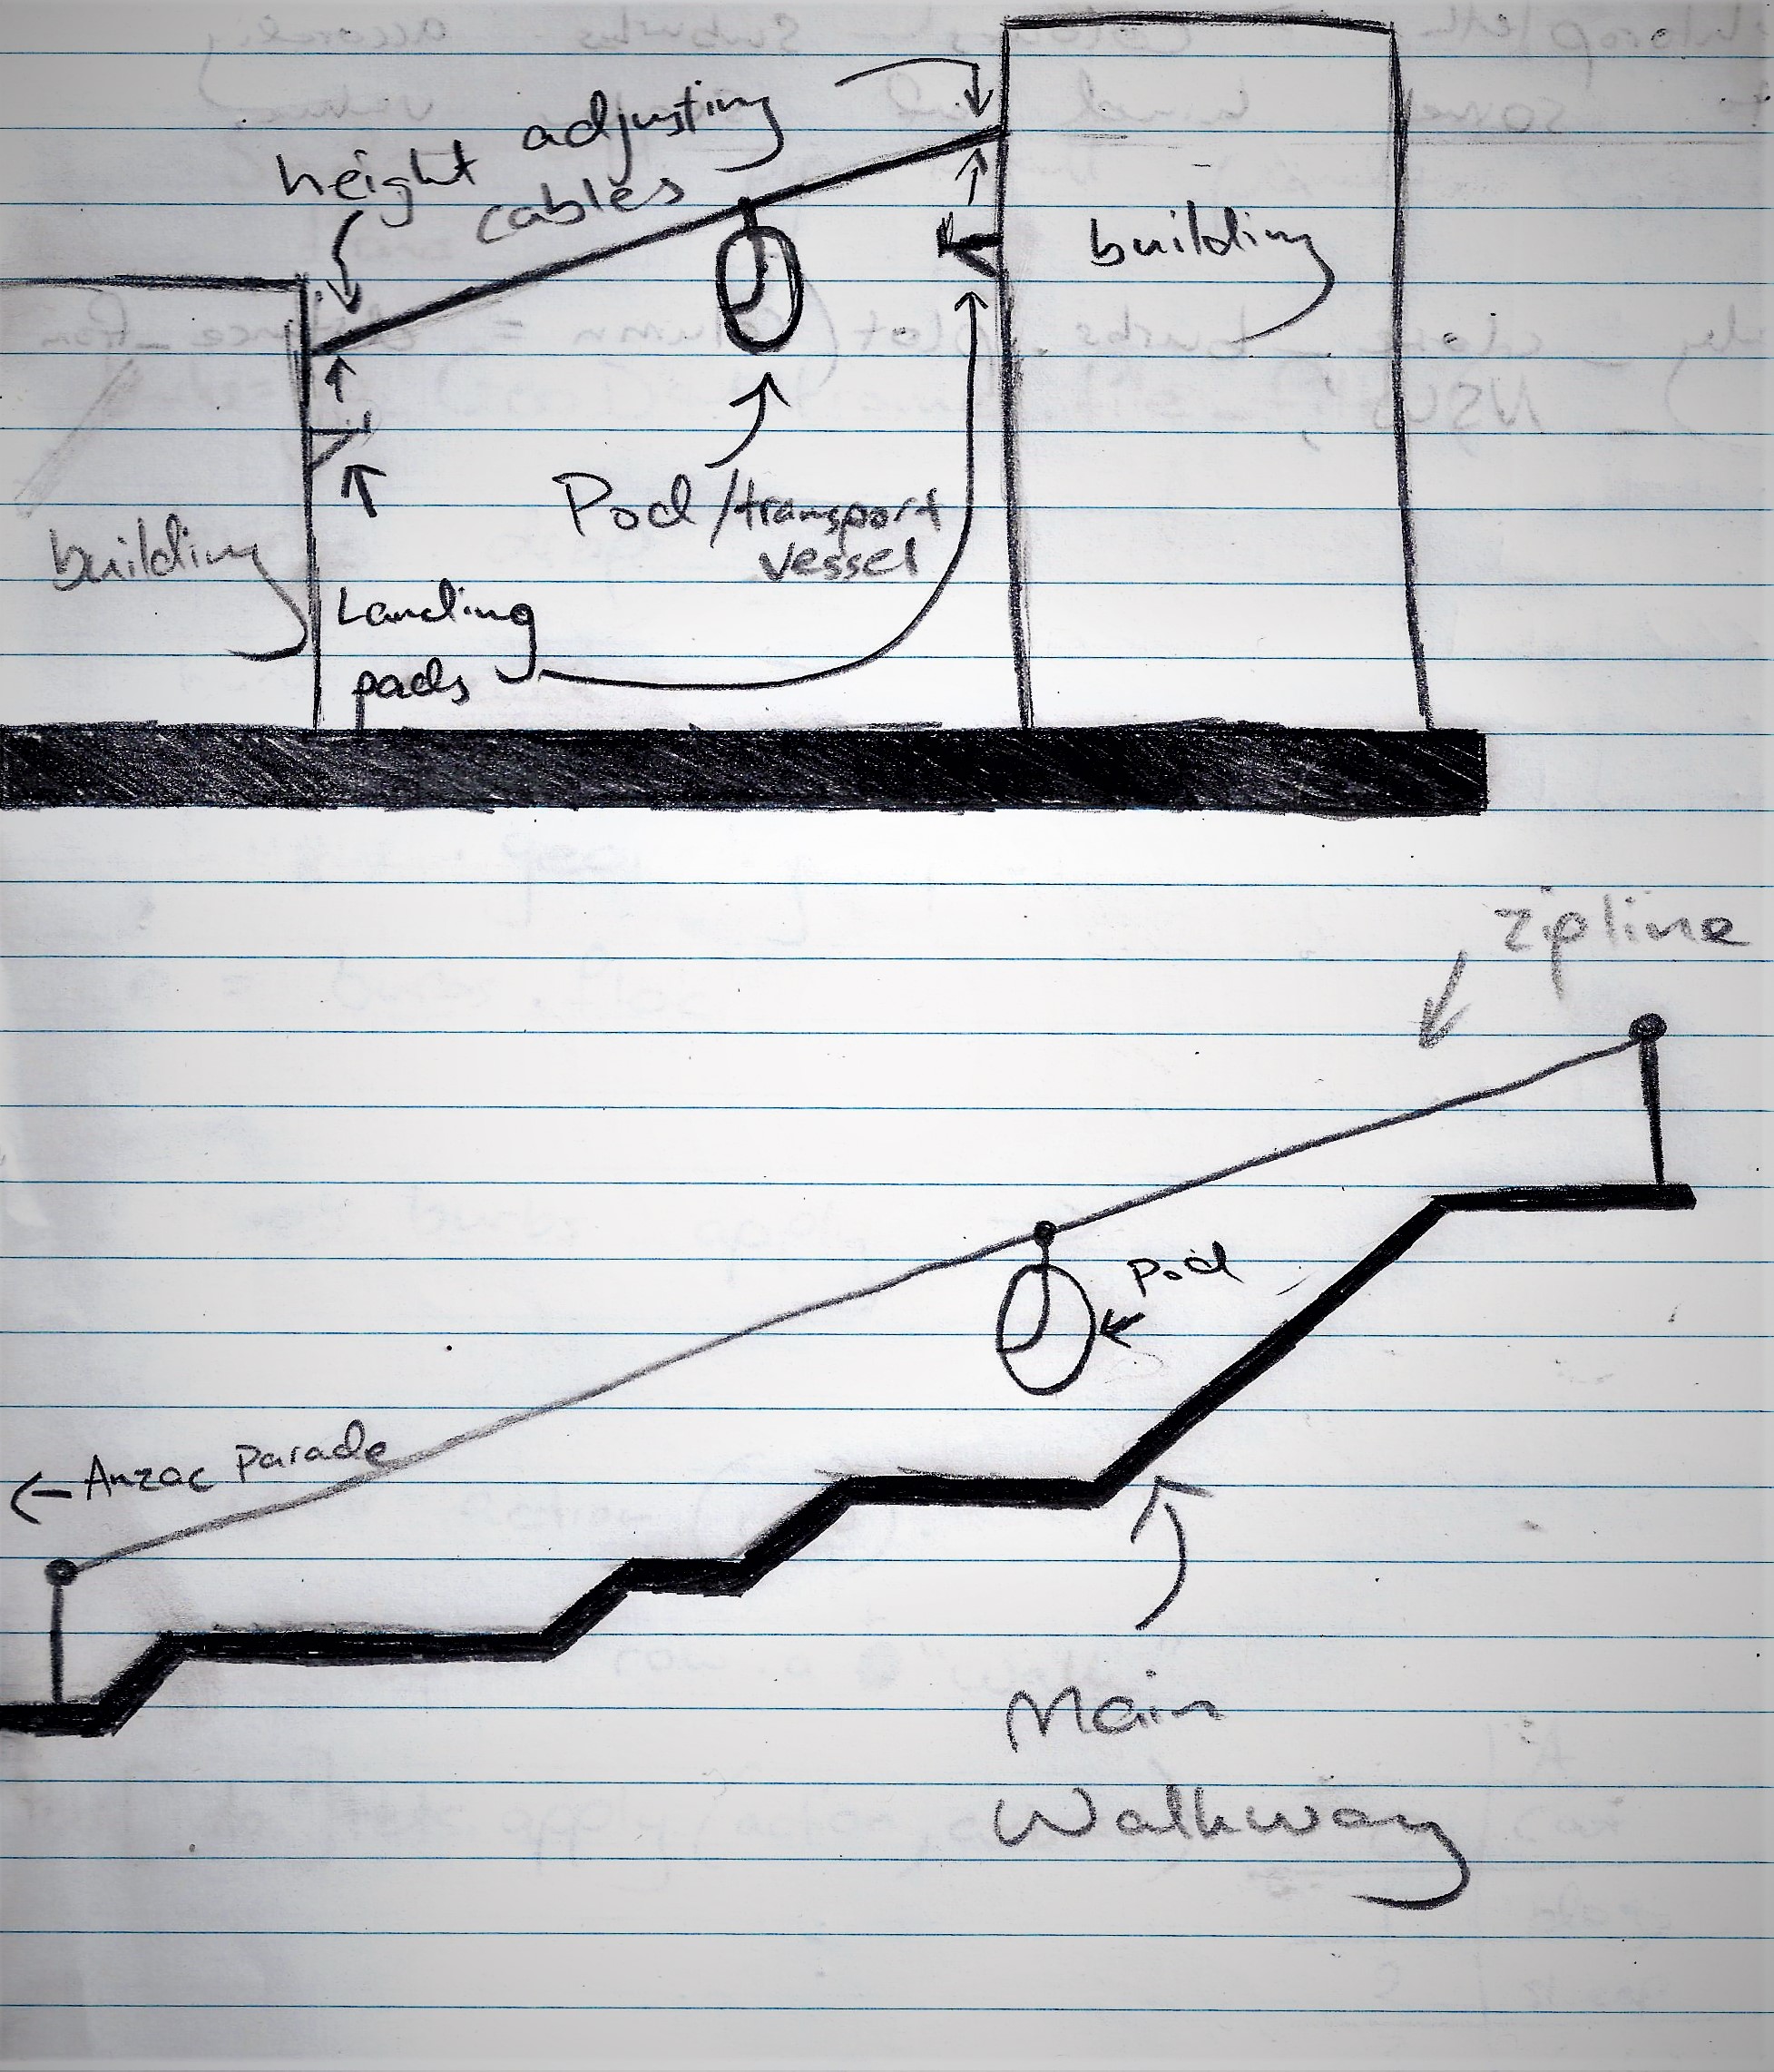 height adjusting
cables
building
building
Pod/transport
vessel
Landing
pads
zipline
Pod
← Anzac Parade
Main
Walkway